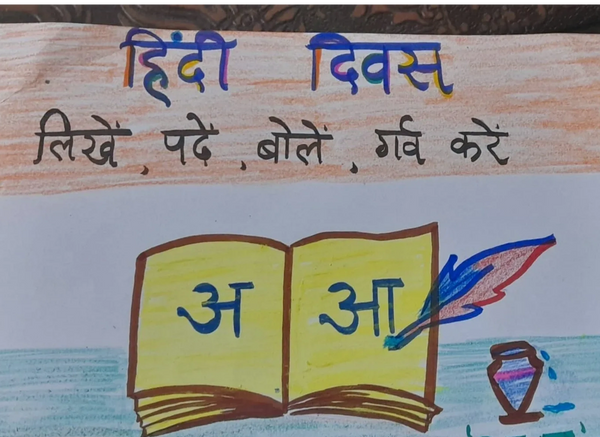 हिंदी दिवस
लिखें, पढें, बोलें, गर्व करें
अ आ